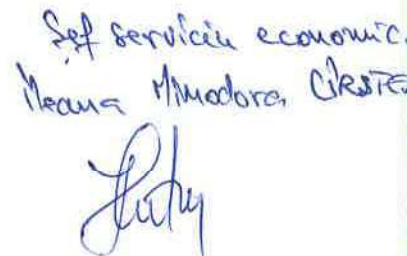 Șef serviciu economic.
Ileana Minodora CÎRSTE